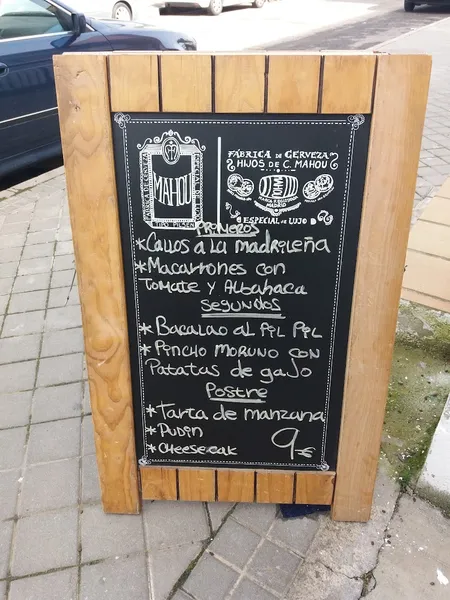 FÁBRICA DE CERVEZA
HIJOS DE C. MAHOU
MAHOU
TIPO PILSEN
MADRID
ESPECIAL DE LUJO
PRIMEROS
* CALLOS A LA MADRILEÑA
* MACARRONES CON
TOMATE Y ALBAHACA
SEGUNDOS
* BACALAO AL PIL PIL
* PINCHO MORUNO CON
PATATAS DE GAJO
POSTRE
* TARTA DE MANZANA
* PUDIN
* CHEESECAK
9€